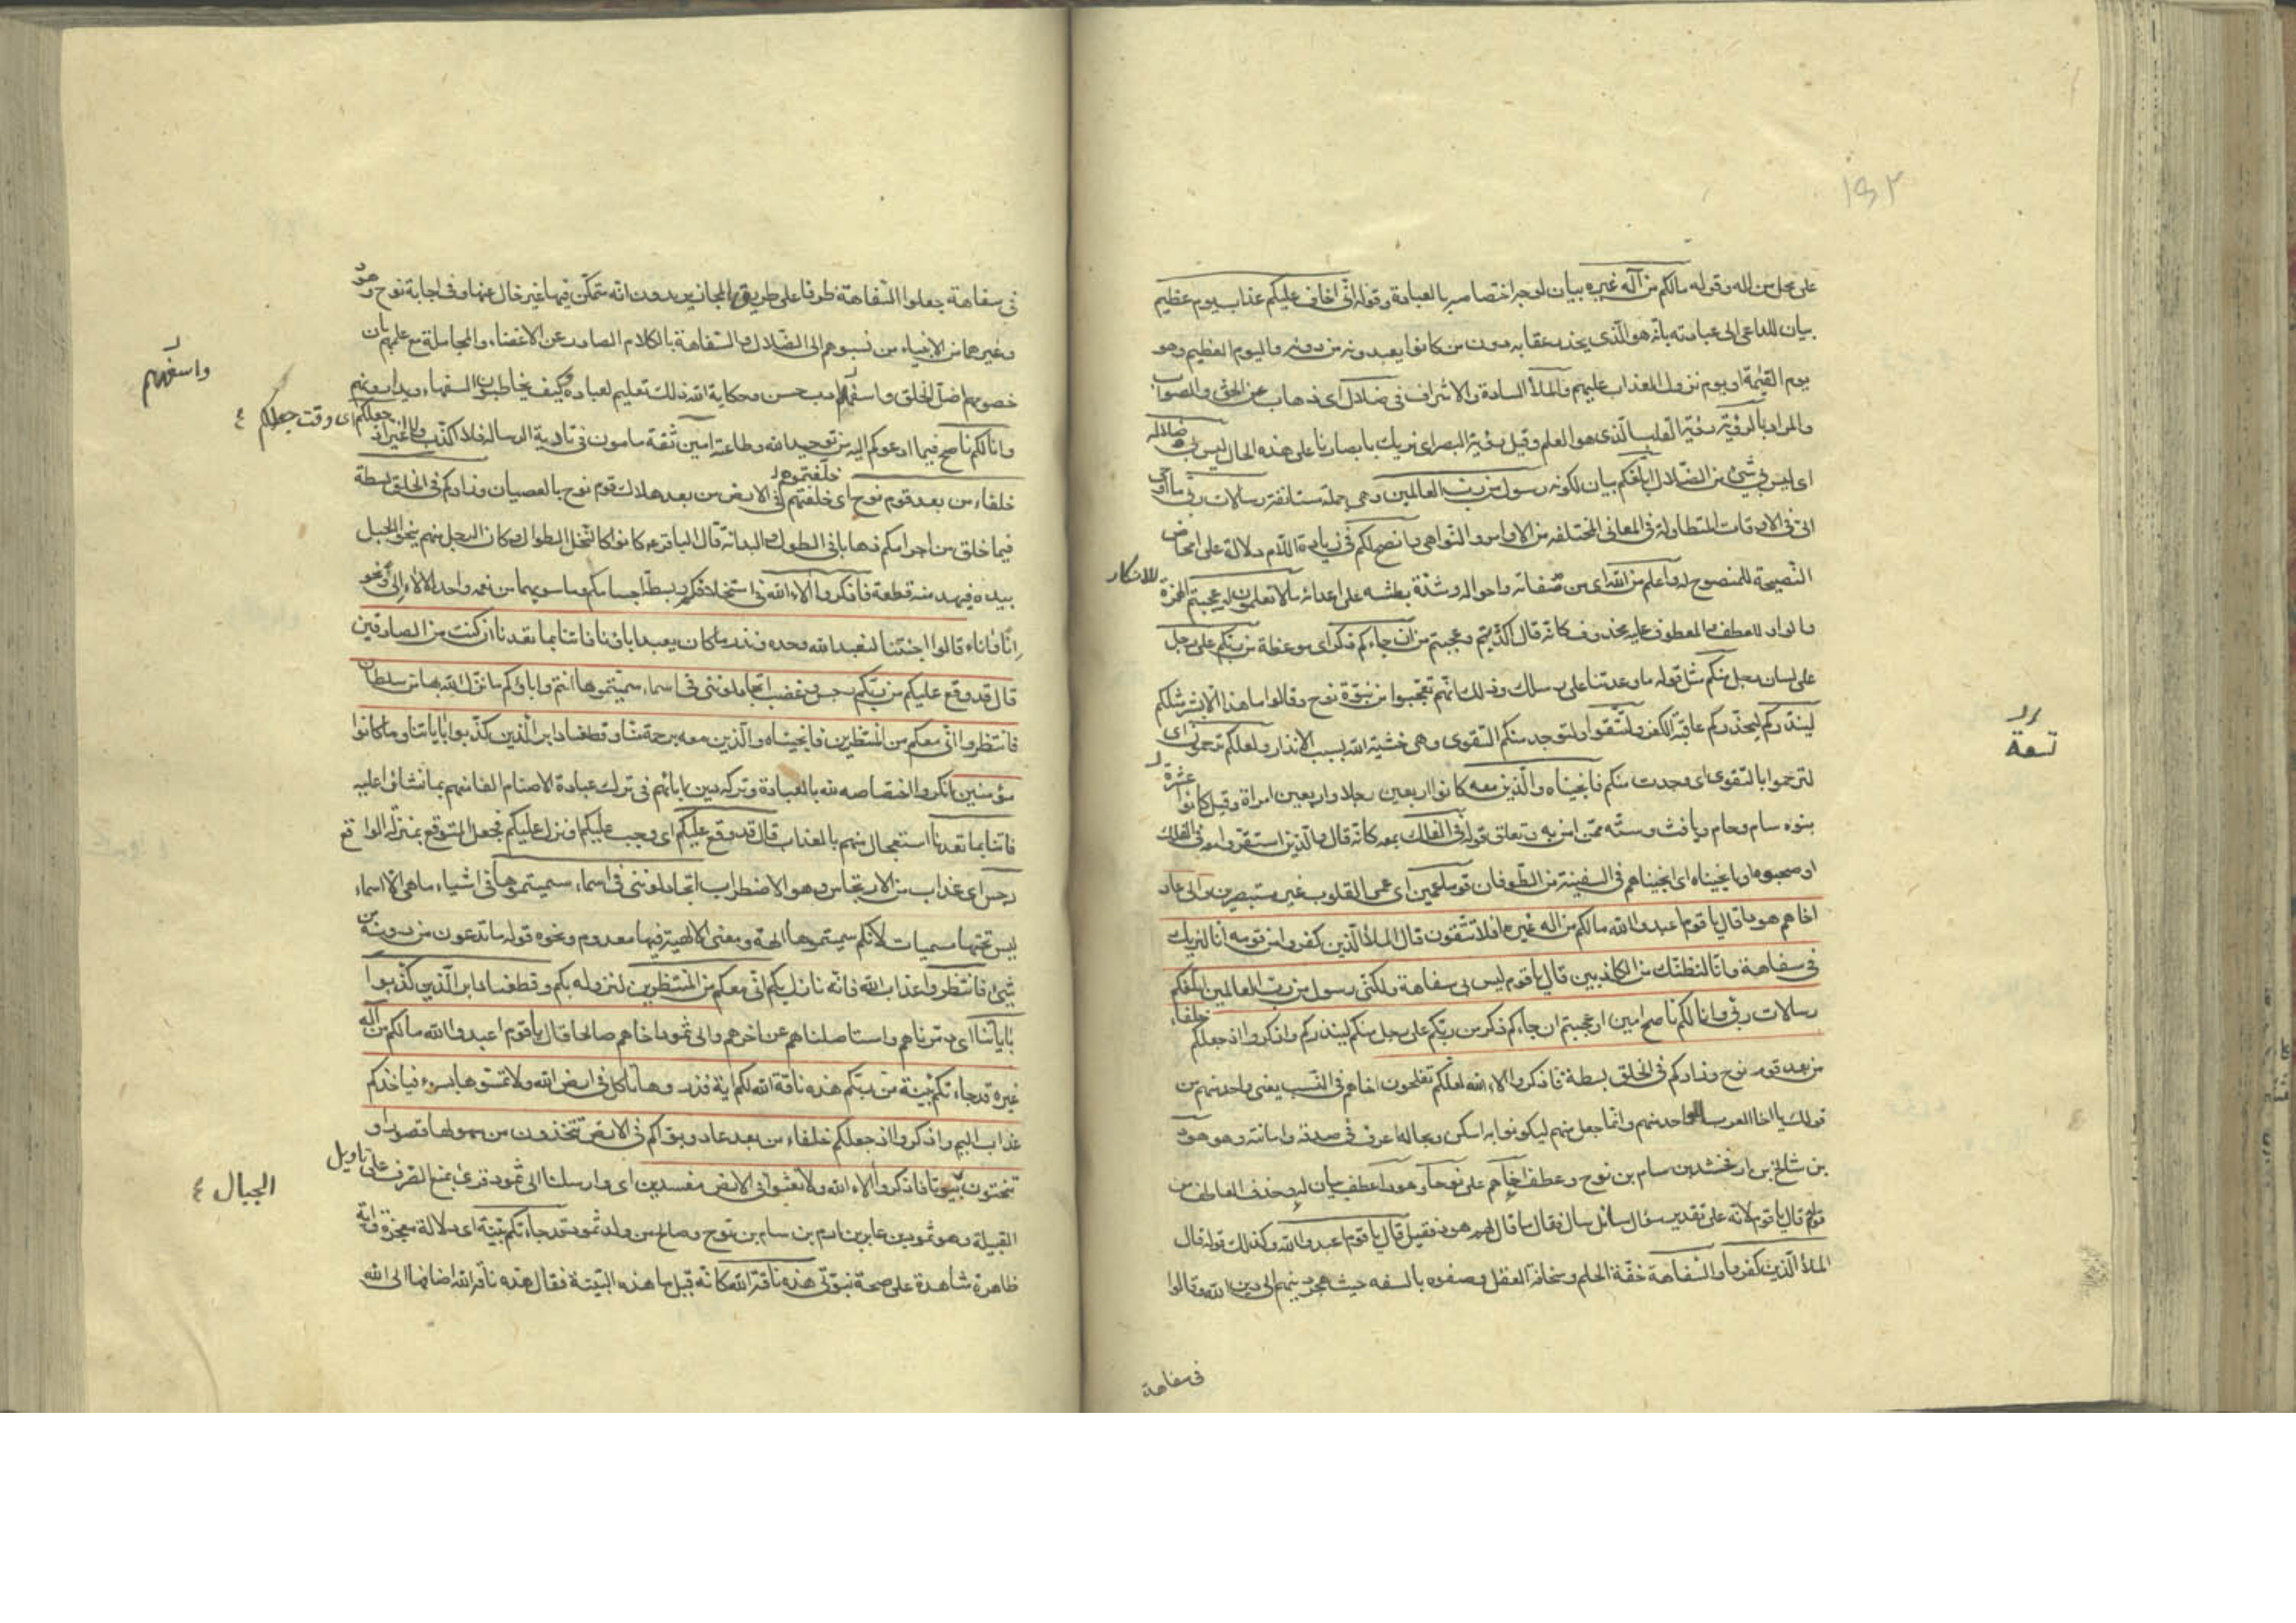 ١٩٢
على محل من اله وقوله مالكم من آله غيره بيان لوجه اختصاصه بالعبادة وقوله انى اخاف عليكم عذاب يوم عظيم
بيان للداعى الى عبادته بانه هو الّذى يحذر عقابه دون من كانوا يعبدونه من دونه واليوم العظيم هو
يوم القيمة او يوم نزول العذاب عليهم والملأ السادة والاشراف فى ضلال اى ذهاب عن الحق والصواب
والمراد بالرؤية رؤية القلب الّذى هو العلم وقيل رؤية البصر اى نريك بابصارنا على هذه الحال ليس بى ضلالة
اى ليس بى شئ من الضّلال ابلغكم بيان لكونه رسول من رب العالمين وهى جملة مستانفة رسالات ربى ما اوحى
الىّ فى الاوقات المتطاولة فى المعانى المختلفه من الاوامر والنّواهى وانصح لكم فى زيادة اللّام دلالة على امحاض
النّصيحة للمنصوح له واعلم من الله اى من صفاته واحواله وشدّة بطشه على اعدائه ما لا تعلمون او عجبتم الهمزة
للانكار
والواو للعطف والمعطوف عليه محذوف كانّه قال اكذّبتم وعجبتم من ان جاءكم ذكر اى موعظة من ربكم على رجل
على لسان رجل منكم مثل قوله ما وعدتنا على رسلك وذلك انّهم تعجّبوا من نبوّة نوح وقالوا ما هذا الّا بشر مثلكم
لينذركم ليحذّركم عاقبة الكفر ولتتّقوا ولتوجد منكم التقوى وهى خشية الله بسبب الانذار ولعلكم ترحمون اى
لترحموا بالتقوى ان وجدت منكم فانجيناه والّذين معه كانوا اربعين رجلا واربعين امراة وقيل كانوا عشرة
تسعة
بنوه سام وحام ويافث وستّه ممّن امن به وتعلق قوله فى الفلك بمعه كانّه قال والّذين استقرّوا معه فى الفلك
او صحبوه او بانجيناه اى انجيناهم فى السفينة من الطّوفان قوما عمين اى عمى القلوب غير مستبصرين والى عاد
اخاهم هودا قال يا قوم اعبدوا الله مالكم من اله غيره افلا تتّقون قال الملأ الّذين كفروا من قومه انا لنريك
فى سفاهة وانّا لنظنّك من الكاذبين قال يا قوم ليس بى سفاهة ولكنّى رسول من رب العالمين ابلّغكم
رسالات ربى وانا لكم ناصح امين اوعجبتم ان جاءكم ذكر من ربّكم على رجل منكم لينذركم واذكروا اذ جعلكم خلفاء
من بعد قوم نوح وزادكم فى الخلق بسطة فاذكروا الاء الله لعلكم تفلحون اخاهم فى النّسب يعنى واحدا منهم من
قولك يا اخا العرب للواحد منهم وانّما جعل منهم ليكونوا به اسكن وبحاله اعرف فى صدقه وامانته وهو هود
بن شالخ بن ارفخشد بن سام بن نوح وعطف اخاهم على نوحا وهودا عطف بيان له وحذف العاطف من
قوله قال يا قوم لانّه على تقدير سؤال سائل سال فقال ما قال لهم هود فقيل قال يا قوم اعبدوا الله وكذلك قوله قال
الملأ الّذين كفروا والسّفاهة خفّة الحلم وسخافة العقل وصفوه بالسفه حيث هجر دينهم الى دين الله وقالوا
فى سفاهة
فى سفاهة جعلوا السّفاهة ظرفا على طريق المجاز يريدون انّه متمكّن فيها غير خال عنها وفى اجابة نوح وهود
وغيرهما من الانبياء من نسبوهم الى الضّلال والسّفاهة بالكلام الصادر عن الاغضاء والمجاملة مع علمهم بان
خصومهم اضلّ الخلق واسفههم ادب حسن وحكاية الله ذلك تعليم لعباده كيف يخاطبون السفهاء ويدارونهم
واسفههم
وانا لكم ناصح فيما ادعوكم اليه من توحيد الله وطاعته امين ثقة مامون فى تادية الرساله فلا اكذّب
جعلكم اى وقت جعلكم ٤
خلفاء من بعد قوم نوح اى خلفتموهم فى الارض من بعد هلاك قوم نوح بالعصيان وزادكم فى الخلق بسطة
فيما خلق من اجرامكم ذهابا فى الطول والبدانة قال الباقر ع كانوا كالنّخل الطوال وكان الرجل منهم ينحو الجبل
بيده فيهد منه قطعة فاذكروا الاء الله فى استخلافكم وبسط اجسامكم وما سويهما من نعمه واحد الالاء الى ونحو
انّا وآناء قالوا اجئتنا لنعبد الله وحده ونذر ما كان يعبد اباؤنا فاتنا بما تعدنا ان كنت من الصادقين
قال قد وقع عليكم من ربّكم رجس وغضب اتجادلوننى فى اسماء سمّيتموها انتم واباؤكم ما نزّل الله بها من سلطان
فانتظروا انّى معكم من المنتظرين فانجيناه والّذين معه برحمة منّا وقطعنا دابر الّذين كذّبوا باياتنا وما كانوا
مؤمنين انكروا اختصاصه لله بالعبادة وتركه دين ابائهم فى ترك عبادة الاصنام الفا منهم بما نشاؤا عليه
فاتنا بما تعدنا استعجال منهم بالعذاب قال قد وقع عليكم اى وجب عليكم او نزل عليكم فجعل المتوقع بمنزلة الواقع
رجس اى عذاب من الارتجاس وهو الاضطراب اتجادلوننى فى اسماء سميتموها فى اشياء ما هى الّا اسماء
ليس تحتها مسميات لانّكم سميتموها الهة ومعنى الالهية فيها معدوم ونحوه قوله ما تدعون من دونه من
شئ فانتظروا عذاب الله فانّه نازل بكم انّى معكم من المنتظرين لنزوله بكم وقطعنا دابر الّذين كذّبوا
باياتنا اى دمّرناهم واستاصلناهم عن اخرهم والى ثمود اخاهم صالحا قال يا قوم اعبدوا الله مالكم من اله
غيره قد جاءتكم بيّنة من ربّكم هذه ناقة الله لكم اية فذروها تاكل فى ارض الله ولا تمسّوها بسوء فياخذكم
عذاب اليم واذكروا اذ جعلكم خلفاء من بعد عاد وبوّاكم فى الارض تتّخذون من سهولها قصورا و
تنحتون بيوتا فاذكروا الاء الله ولا تعثوا فى الارض مفسدين اى وارسلنا الى ثمود قرئ بمنع الصّرف على تاويل
الجبال ٤
القبيلة وهو ثمود بن عابر بن ارم بن سام بن نوح وصالح من ولد ثمود قد جاءتكم بيّنة اى دلالة معجزة واية
ظاهرة شاهدة على صحة نبوّتى هذه ناقة الله كانّه قيل ما هذه البيّنة فقال هذه ناقة الله اضافها الى الله